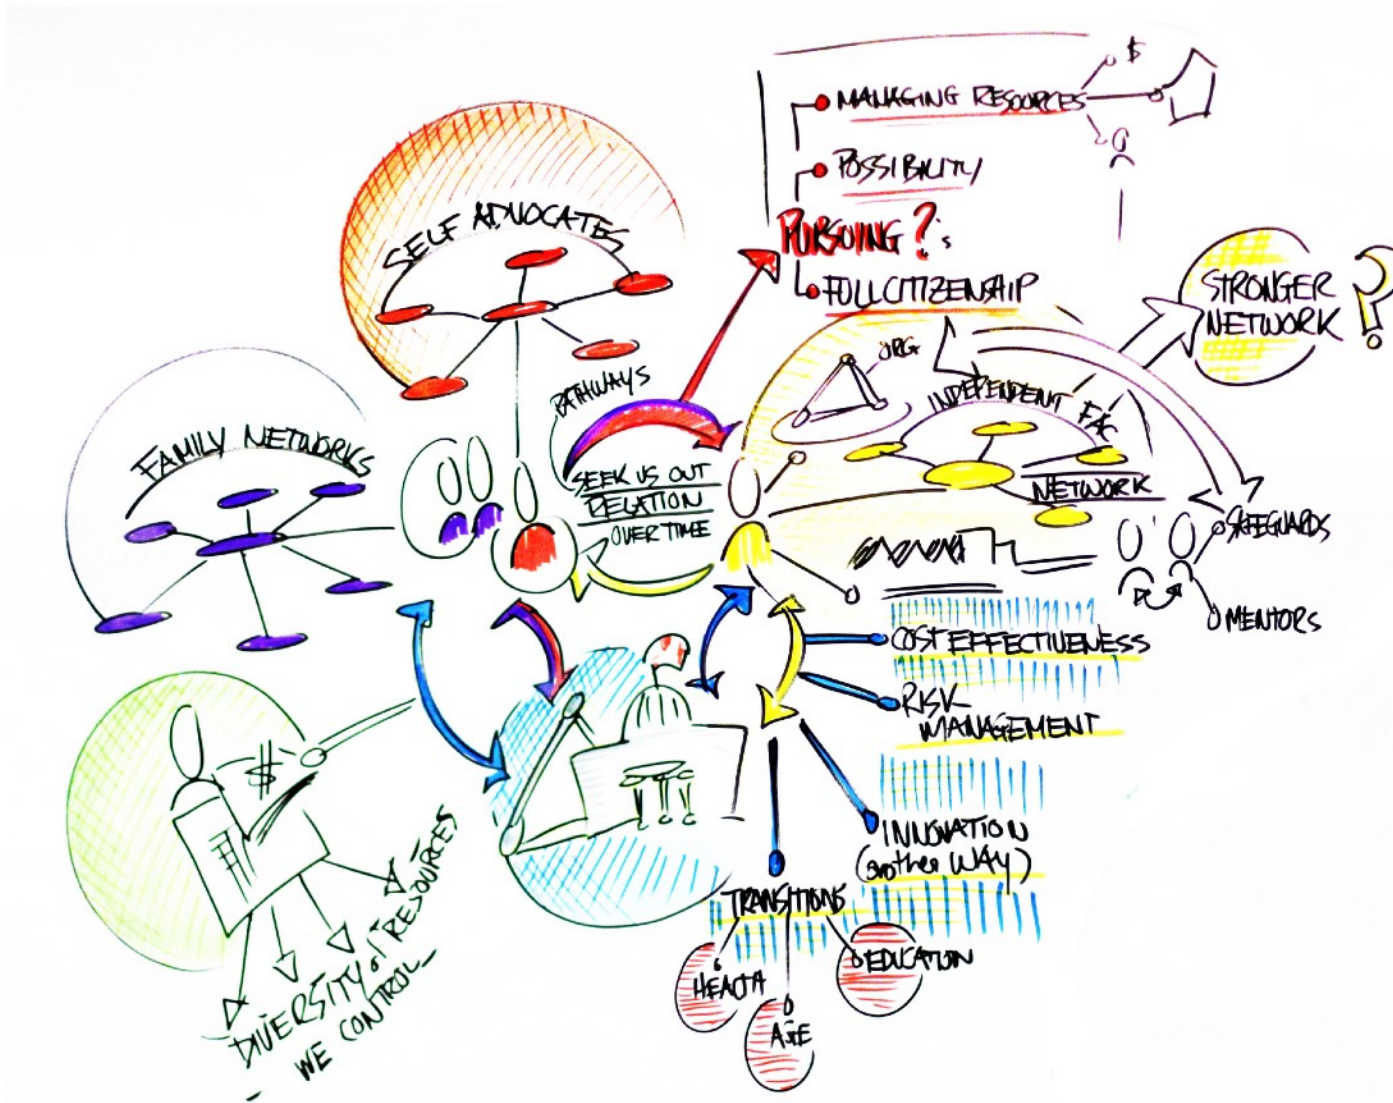 $
MANAGING RESOURCES
POSSIBILITY
PURSUING ?'s
FULL CITIZENSHIP
SELF ADVOCATES
STRONGER
NETWORK ?
ORG
INDEPENDENT FAC
NETWORK
PATHWAYS
SEEK US OUT
RELATION
OVER TIME
FAMILY NETWORKS
SAFEGUARDS
MENTORS
COST EFFECTIVENESS
RISK
MANAGEMENT
INNOVATION
(another WAY)
TRANSITIONS
HEALTH
AGE
EDUCATION
$
DIVERSITY of RESOURCES
WE CONTROL